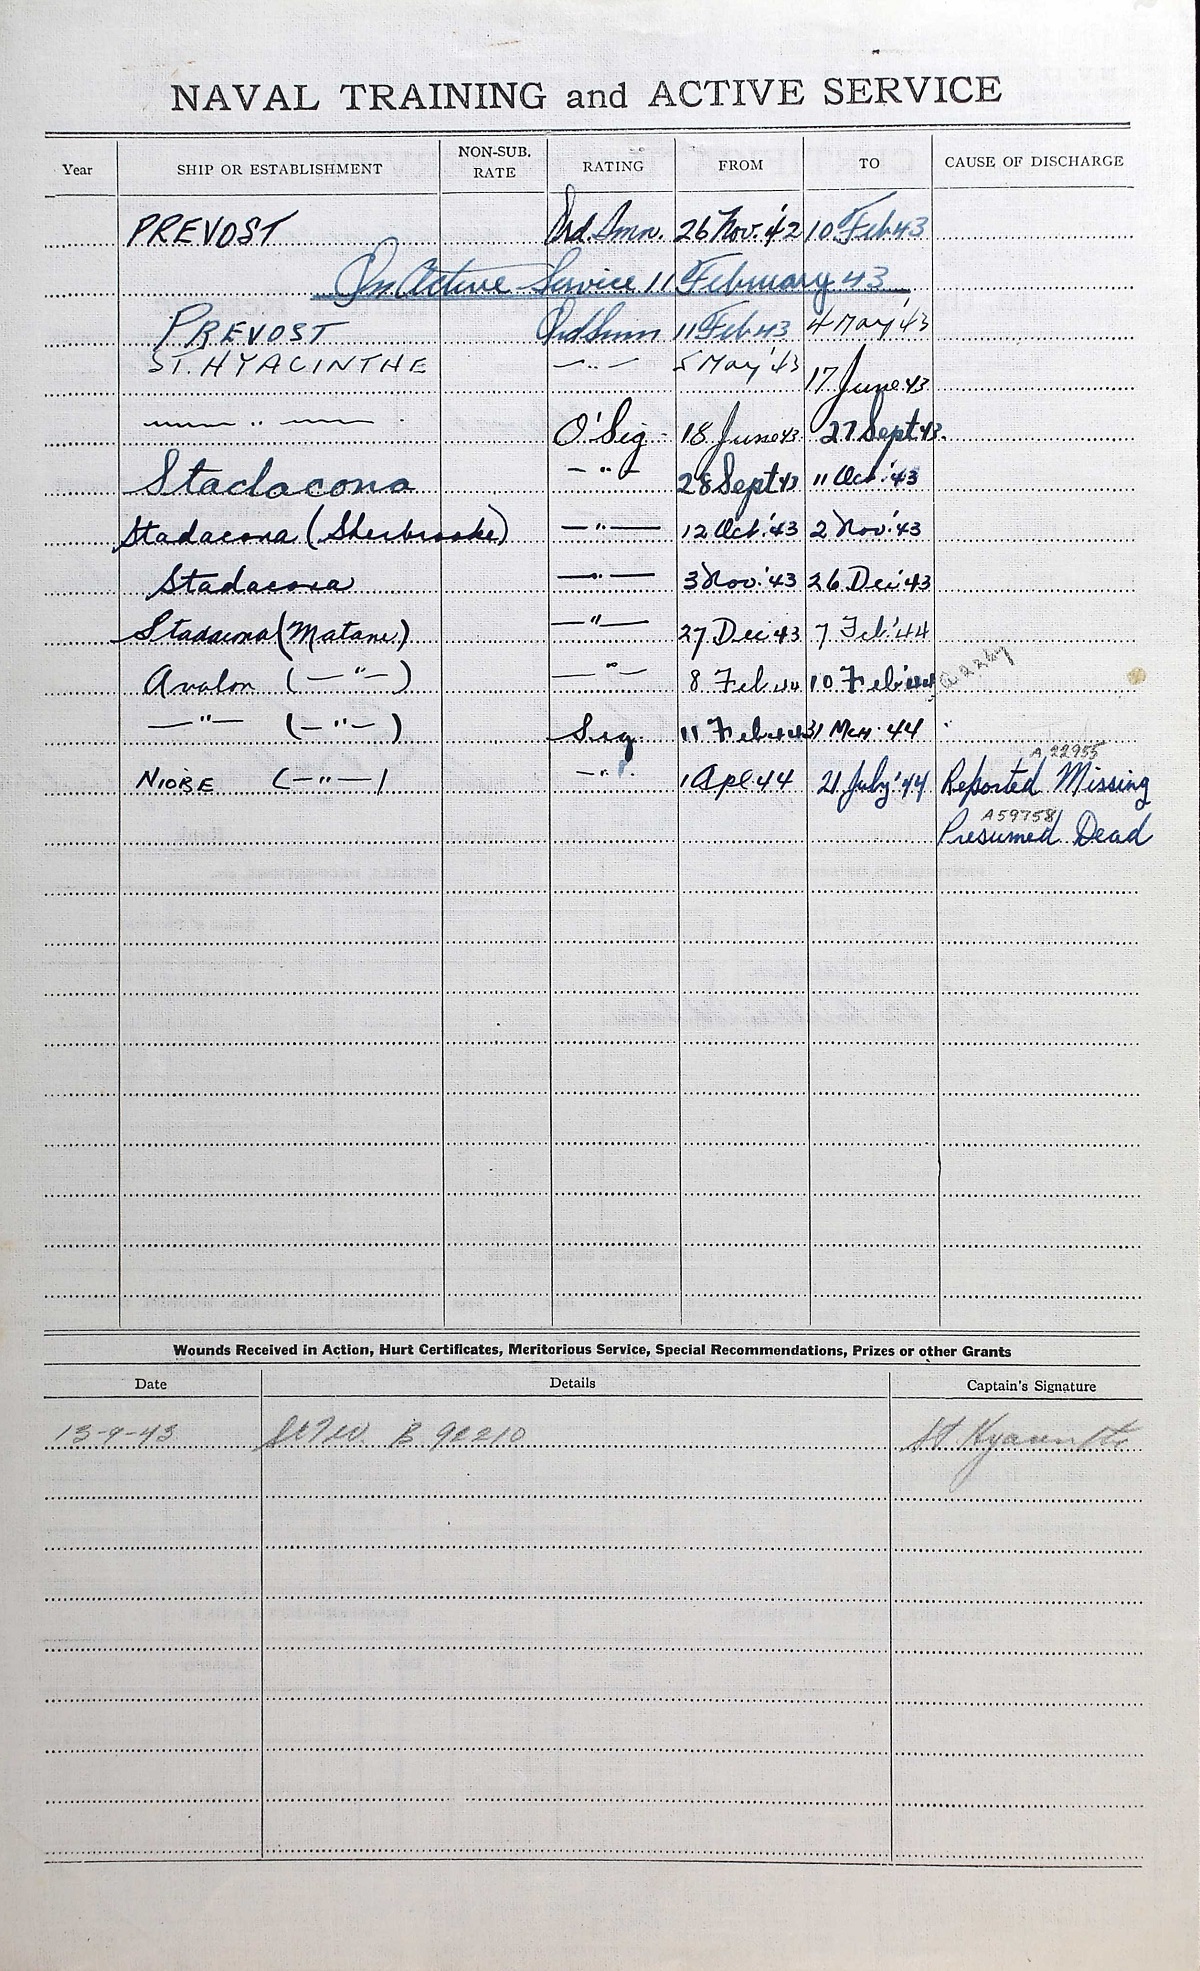 NAVAL TRAINING and ACTIVE SERVICE
Year SHIP OR ESTABLISHMENT NON-SUB. RATE RATING FROM TO CAUSE OF DISCHARGE
PREVOST Ord. Smn. 26 Nov. '42 10 Feb 43
On Active Service 11 February 43
PREVOST Ord Smn 11 Feb 43 4 May '43
ST. HYACINTHE —"— 5 May '43 17 June 43
—— " —— O'Sig - 18 June 43 27 Sept 43.
Stadacona —"— 28 Sept 43 11 Oct '43
Stadacona (Sherbrooke) —"— 12 Oct. '43 2 Nov. '43
Stadacona —"— 3 Nov. '43 26 Dec '43
Stadacona (Matane) —"— 27 Dec 43 7 Feb '44
Avalon (—"—) —"— 8 Feb 44 10 Feb 44
—"— (—"—) Sig. 11 Feb 44 31 Mch. 44
A 22955
NIOBE (—"—) —"— 1 Apl 44 21 July '44 Reported Missing
A59758
Presumed Dead
Wounds Received in Action, Hurt Certificates, Meritorious Service, Special Recommendations, Prizes or other Grants
Date Details Captain's Signature
13-9-43 B 92210 St Hyacinthe